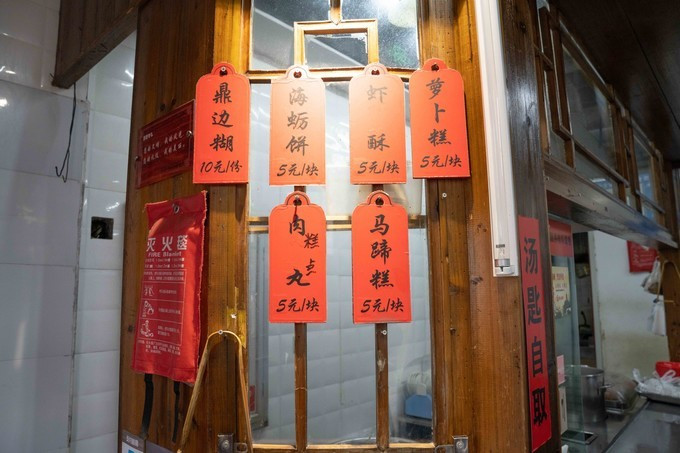 鼎边糊
10元/份
海蛎饼
5元/块
虾酥
5元/块
萝卜糕
5元/块
肉丸
糕点
5元/块
马蹄糕
5元/块
灭火毯
FIRE Blanket
汤匙自取